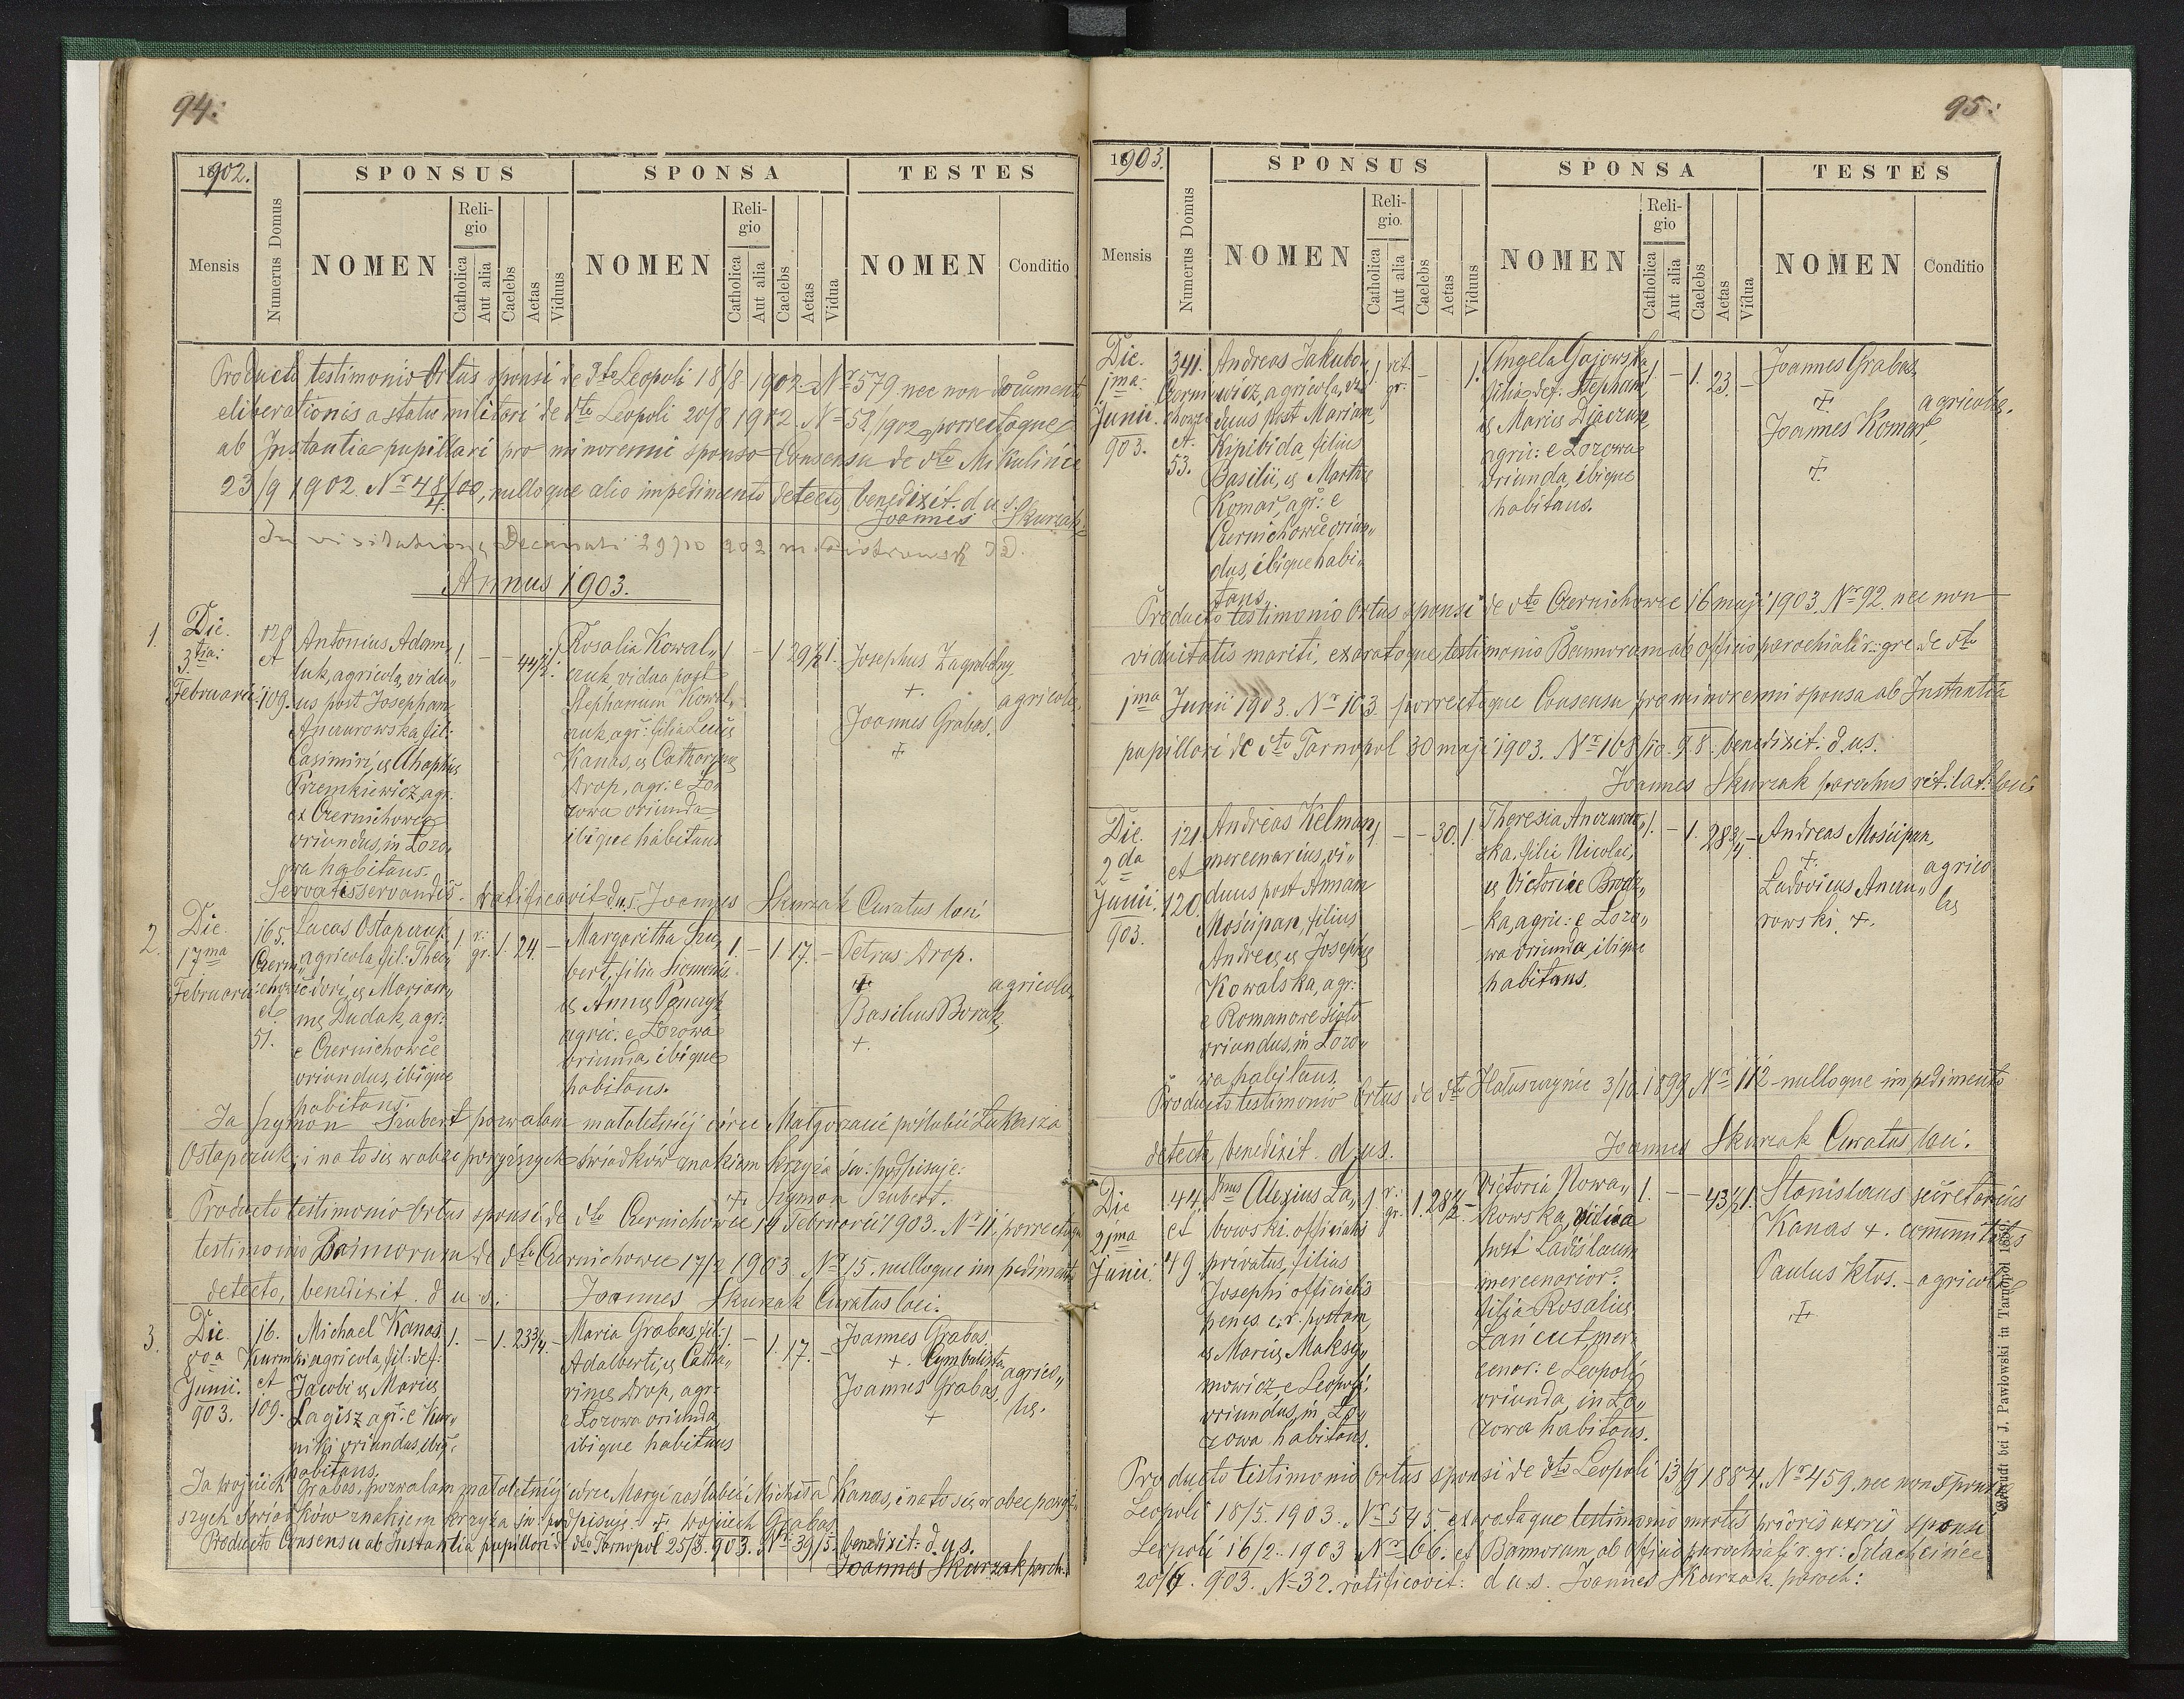 94:
1902.
SPONSUS
SPONSA
TESTES
Mensis
Numerus Domus
NOMEN
Religio
Catholica
Aut alia
Caelebs
Aetas
Viduus
NOMEN
Religio
Catholica
Aut alia
Caelebs
Aetas
Vidua
NOMEN
Conditio
Producto testimonio Ortus sponsi de dto Leopoli 18/8 1902. Nr 579 nec non documento
eliberationis a statu militari de dto Leopoli 20/8 1902. Nr 52/1902 porrectoque
ab Instantia pupillari pro minorenni sponso Consensu de dto Mikulince
23/9 1902. Nr 48/00, nulloque alio impedimento detecto, benedixit. d.u.s.
Joannes Skurzak
In visitatione Decanali 29/10 902
Annus 1903.
1.
Die
3tia
Februarii
128
et
109.
Antonius Adam„
luk, agricola, vidu„
us post Josepham
Anczurowska, fil:
Casimiri, et Agaphiæ
Przemkiewicz, agr.
ex Czernichowce
oriundus, in Łozo„
wa habitans.
1. – – 44½ 1.
Rosalia Kowal„
czuk, vidua post
Stephanum Kowal„
czuk, agr: filia Lucæ
Kanas, et Catharinæ
Arop, agr: e Ło„
zowa oriunda
ibique habitans
1 – 1 29½ 1.
Josephus Zagrobelny
+
Joannes Grabas.
+
agricolæ
Servatis servandis. ratificavit d.u.s. Joannes Skurzak Curatus loci
2.
Die
17ma
Februarii
165.
Czerni„
chowce
et
51.
Lucas Ostapczuk
agricola, fil: Theo„
dori, et Marian„
næ Dudak, agr:
e Czernichowce
oriundus, ibique
habitans.
1. r: gr. 1. 24. –
Margaritha Szu„
bert, filia Simonis
et Annæ Panczys
agric: e Łozowa
oriunda ibique
habitans.
1. – 1 17. –
Petrus Arop.
+
Basilius Borak
+.
agricolæ
Ja Szymon Szubert pozwalam małoletniéj córce Małgorzacie poślubić Łukasza
Ostapczuk, i na to się wobec powyższych świadków znakiem krzyża św: podpisuje:
+ Szymon Szubert.
Producto testimonio Ortus sponsi de dto Czernichowce 14 Februarii 1903. Nr 11. porrectoque
testimonio Bannorum de dto Czernichowce 17/2 1903 Nr 15. nulloque impedimento
detecto, benedixit. d u s. Joannes Skurzak Curatus loci.
3.
Die
Junii.
903.
16.
Kurniki
et
109.
Michael Kanas
agricola, fil: def:
Jacobi et Mariæ
Łagisz agr: e Kur„
niki oriundus, ibiq:
habitans.
1. – 1. 23¾. –
Maria Grabas, fil:
Adalberti, et Catha„
rinæ Arop, agr:
e Łozowa oriunda,
ibique habitans
1 – 1. 17. –
Joannes Grabas
+. Cymbalista
Joannes Grabas.
+
agrico„
læ.
Ja Wojciech Grabas, pozwalam małoletniéj córce Maryi zaślubić Michała Kanas, i na to się wobec powyż„
szych świadków znakiem krzyża św: podpisuję. + Wojciech Grabas
Producto Consensu ab Instantia pupillari de dto Tarnopol 25/5. 903. Nr 39/5. benedixit: d.u.s.
Joannes Skurzak paroch.
95:
1903.
SPONSUS
SPONSA
TESTES
Mensis
Numerus Domus
NOMEN
Religio
Catholica
Aut alia
Caelebs
Aetas
Viduus
NOMEN
Religio
Catholica
Aut alia
Caelebs
Aetas
Vidua
NOMEN
Conditio
Die
1ma
Junii.
903.
341.
Czerni
chowce
et
53.
Andreas Jakubo„
wicz, agricola, vi„
duus post Mariam
Kipibida, filius
Basilii, et Marthæ
Komar, agr: e
Czernichowce oriun„
dus, ibique habi„
tans.
1. rit. gr. – 1.
Angela Gajowska
filia def: Stephani
et Mariæ Djaczun,
agric: e Łozowa
oriunda, ibique
habitans.
1 – 1. 23. –
Joannes Grabas
+.
Joannes Komar,
+
agricolæ.
Producto testimonio Ortus sponsi de dto Czernichowce 16 maji 1903. Nr 92. nec non
viduitatis mariti, exaratoque testimonio Bannorum ab officio parochiali r: gr. de dto
1ma Junii 1903. Nr 103. porrectoque Consensu pro minorenni sponsa ab Instantia
pupillari de dto Tarnopol 30 maji 1903. Nr 168/10. benedixit: d.us.
Joannes Skurzak parochus rit. lat. loci
Die
2da
Junii.
903.
121.
et
120.
Andreas Kelman,
mercenarius, vi„
duus post Annam
Mościpan, filius
Andreæ, et Josephæ
Kowalska, agr:
e Romanowe Sioło
oriundus, in Łozo„
wa habitans.
1 – – 30. 1
Theresia Anczurow„
ska, filia Nicolai,
et Victoriæ Brodz„
ka, agric: e Łozo„
wa oriunda, ibique
habitans.
1. – 1. 28¾ –
Andreas Mościpan,
+.
Ludovicus Anczu„
rowski +.
agrico
læ
Producto testimonio Ortus de dto Hałuszczyńce 3/10. 1899. Nr 112 – nulloque impedimento
detecto, benedixit. d.us. Joannes Skurzak Curatus loci.
Die
21ma
Junii.
44.
et
49
Alexius Ła„
bowski. officialis
privatus, filius
Josephi officialis
penes c.r. postam,
et Mariæ Maksy„
mowicz, e Leopoli,
oriundus, in Ło„
zowa habitans.
1. r: gr. 1. 28½ –
Victoria Nowa„
kowska, vidua
post Ladislaum
mercenarior:
filia Rosaliæ
Łańcut mer„
cenar: e Leopoli
oriunda, in Ło„
zowa habitans.
1. – – 43½ 1.
Stanislaus
Kanas +.
Paulus Ktos. –
+
secretarius
communitatis
agricola
Producto testimonio Ortus sponsi de dto Leopoli 13/9 1884. Nr 459. nec non sponsæ
Leopoli 18/5. 1903. Nr 545. exaratoque testimonio mortis prioris uxoris sponsi
Leopoli 16/2. 1903 Nr 66. et Bannorum ab Officio parochiali r. gr: Szlachcińce
20/6. 903. Nr 32. ratificavit: d u.s. Joannes Skurzak. paroch:
Gedruckt bei J. Pawłowski in Tarnopol